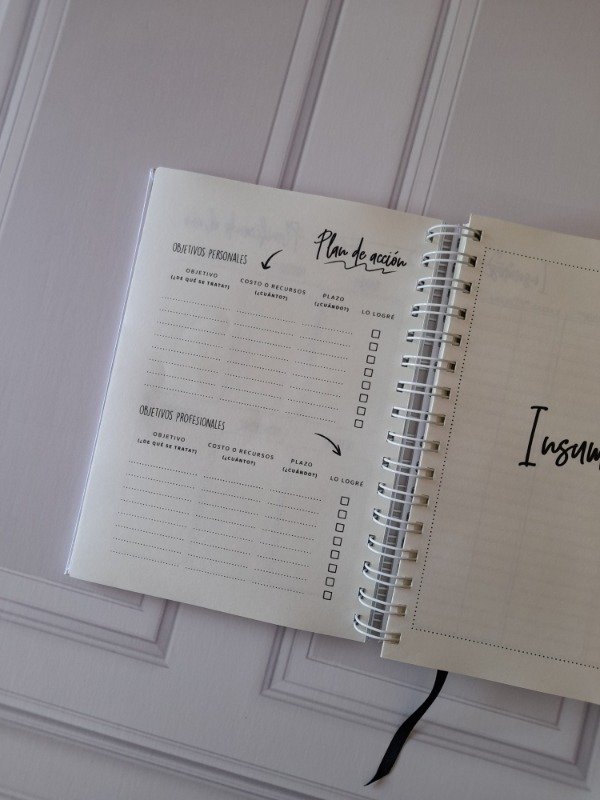 Plan de acción
OBJETIVOS PERSONALES
OBJETIVO COSTO O RECURSOS PLAZO LO LOGRÉ
(¿DE QUÉ SE TRATA?) (¿CUÁNTO?) (¿CUÁNDO?)
OBJETIVOS PROFESIONALES
OBJETIVO COSTO O RECURSOS PLAZO LO LOGRÉ
(¿DE QUÉ SE TRATA?) (¿CUÁNTO?) (¿CUÁNDO?)
Insum